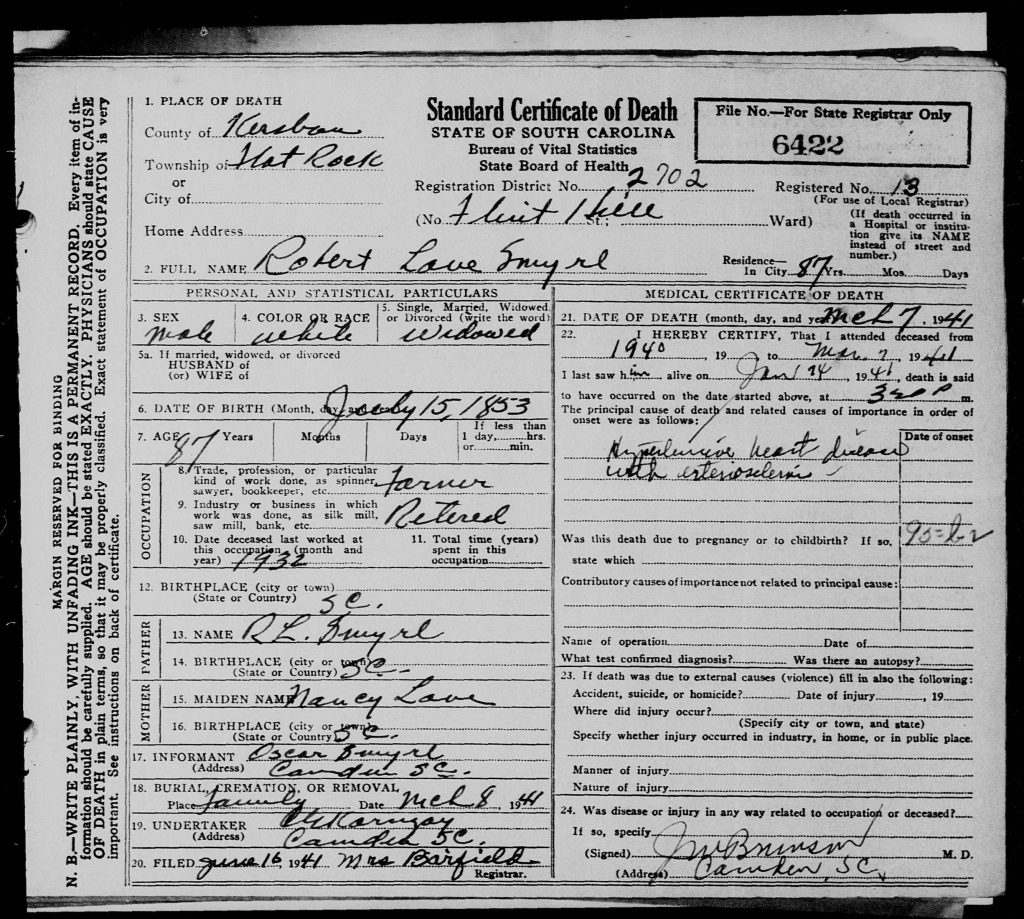 N. B.—WRITE PLAINLY, WITH UNFADING INK—THIS IS A PERMANENT RECORD. Every item of in-
formation should be carefully supplied. AGE should be stated EXACTLY. PHYSICIANS should state CAUSE
OF DEATH in plain terms, so that it may be properly classified. Exact statement of OCCUPATION is very
important. See instructions on back of certificate.
MARGIN RESERVED FOR BINDING
1. PLACE OF DEATH
County of Kershaw
Township of Flat Rock
or
City of
Home Address
Standard Certificate of Death
STATE OF SOUTH CAROLINA
Bureau of Vital Statistics
State Board of Health
Registration District No. 2702
(No. Flint Hill St.; Ward)
File No.—For State Registrar Only
6422
Registered No. 13
(For use of Local Registrar)
(If death occurred in
a Hospital or institu-
tion give its NAME
instead of street and
number.)
2. FULL NAME Robert Love Smyrl
Residence—
In City 87 Yrs. Mos. Days
PERSONAL AND STATISTICAL PARTICULARS
3. SEX
male
4. COLOR OR RACE
white
5. Single, Married, Widowed
or Divorced (write the word)
Widowed
5a. If married, widowed, or divorced
HUSBAND of
(or) WIFE of
6. DATE OF BIRTH (Month, day, and year) 15, 1853
7. AGE 87 Years Months Days
If less than
1 day, hrs.
or min.
OCCUPATION
8. Trade, profession, or particular
kind of work done, as spinner,
sawyer, bookkeeper, etc. Farmer
9. Industry or business in which
work was done, as silk mill,
saw mill, bank, etc. Retered
10. Date deceased last worked at
this occupation (month and
year) 1932
11. Total time (years)
spent in this
occupation
12. BIRTHPLACE (city or town)
(State or Country) S.C.
FATHER
13. NAME R L. Smyrl
14. BIRTHPLACE (city or town)
(State or Country) S.C.
MOTHER
15. MAIDEN NAME Nancy Love
16. BIRTHPLACE (city or town)
(State or Country) S.C.
17. INFORMANT Oscar Smyrl
(Address) Camden S.C.
18. BURIAL, CREMATION, OR REMOVAL
Place family Date Mch 8, 1941
19. UNDERTAKER
(Address) Camden S.C.
20. FILED June 16, 1941 Mrs Barfield
Registrar.
MEDICAL CERTIFICATE OF DEATH
21. DATE OF DEATH (month, day, and year) Mch 7, 1941
22. I HEREBY CERTIFY, That I attended deceased from
1940, 19 to Mar. 7, 1941
I last saw him alive on Jan 24, 1941, death is said
to have occurred on the date started above, at 320 P m.
The principal cause of death and related causes of importance in order of
onset were as follows:
Date of onset
Hypertensive heart disease
with arteriosclerosis
Was this death due to pregnancy or to childbirth? If so,
state which
Contributory causes of importance not related to principal cause:
Name of operation Date of
What test confirmed diagnosis? Was there an autopsy?
23. If death was due to external causes (violence) fill in also the following:
Accident, suicide, or homicide? Date of injury , 19
Where did injury occur?
(Specify city or town, and state)
Specify whether injury occurred in industry, in home, or in public place.
Manner of injury
Nature of injury
24. Was disease or injury in any way related to occupation of deceased?
If so, specify
(Signed) Brunson M. D.
(Address) Camden, S.C.